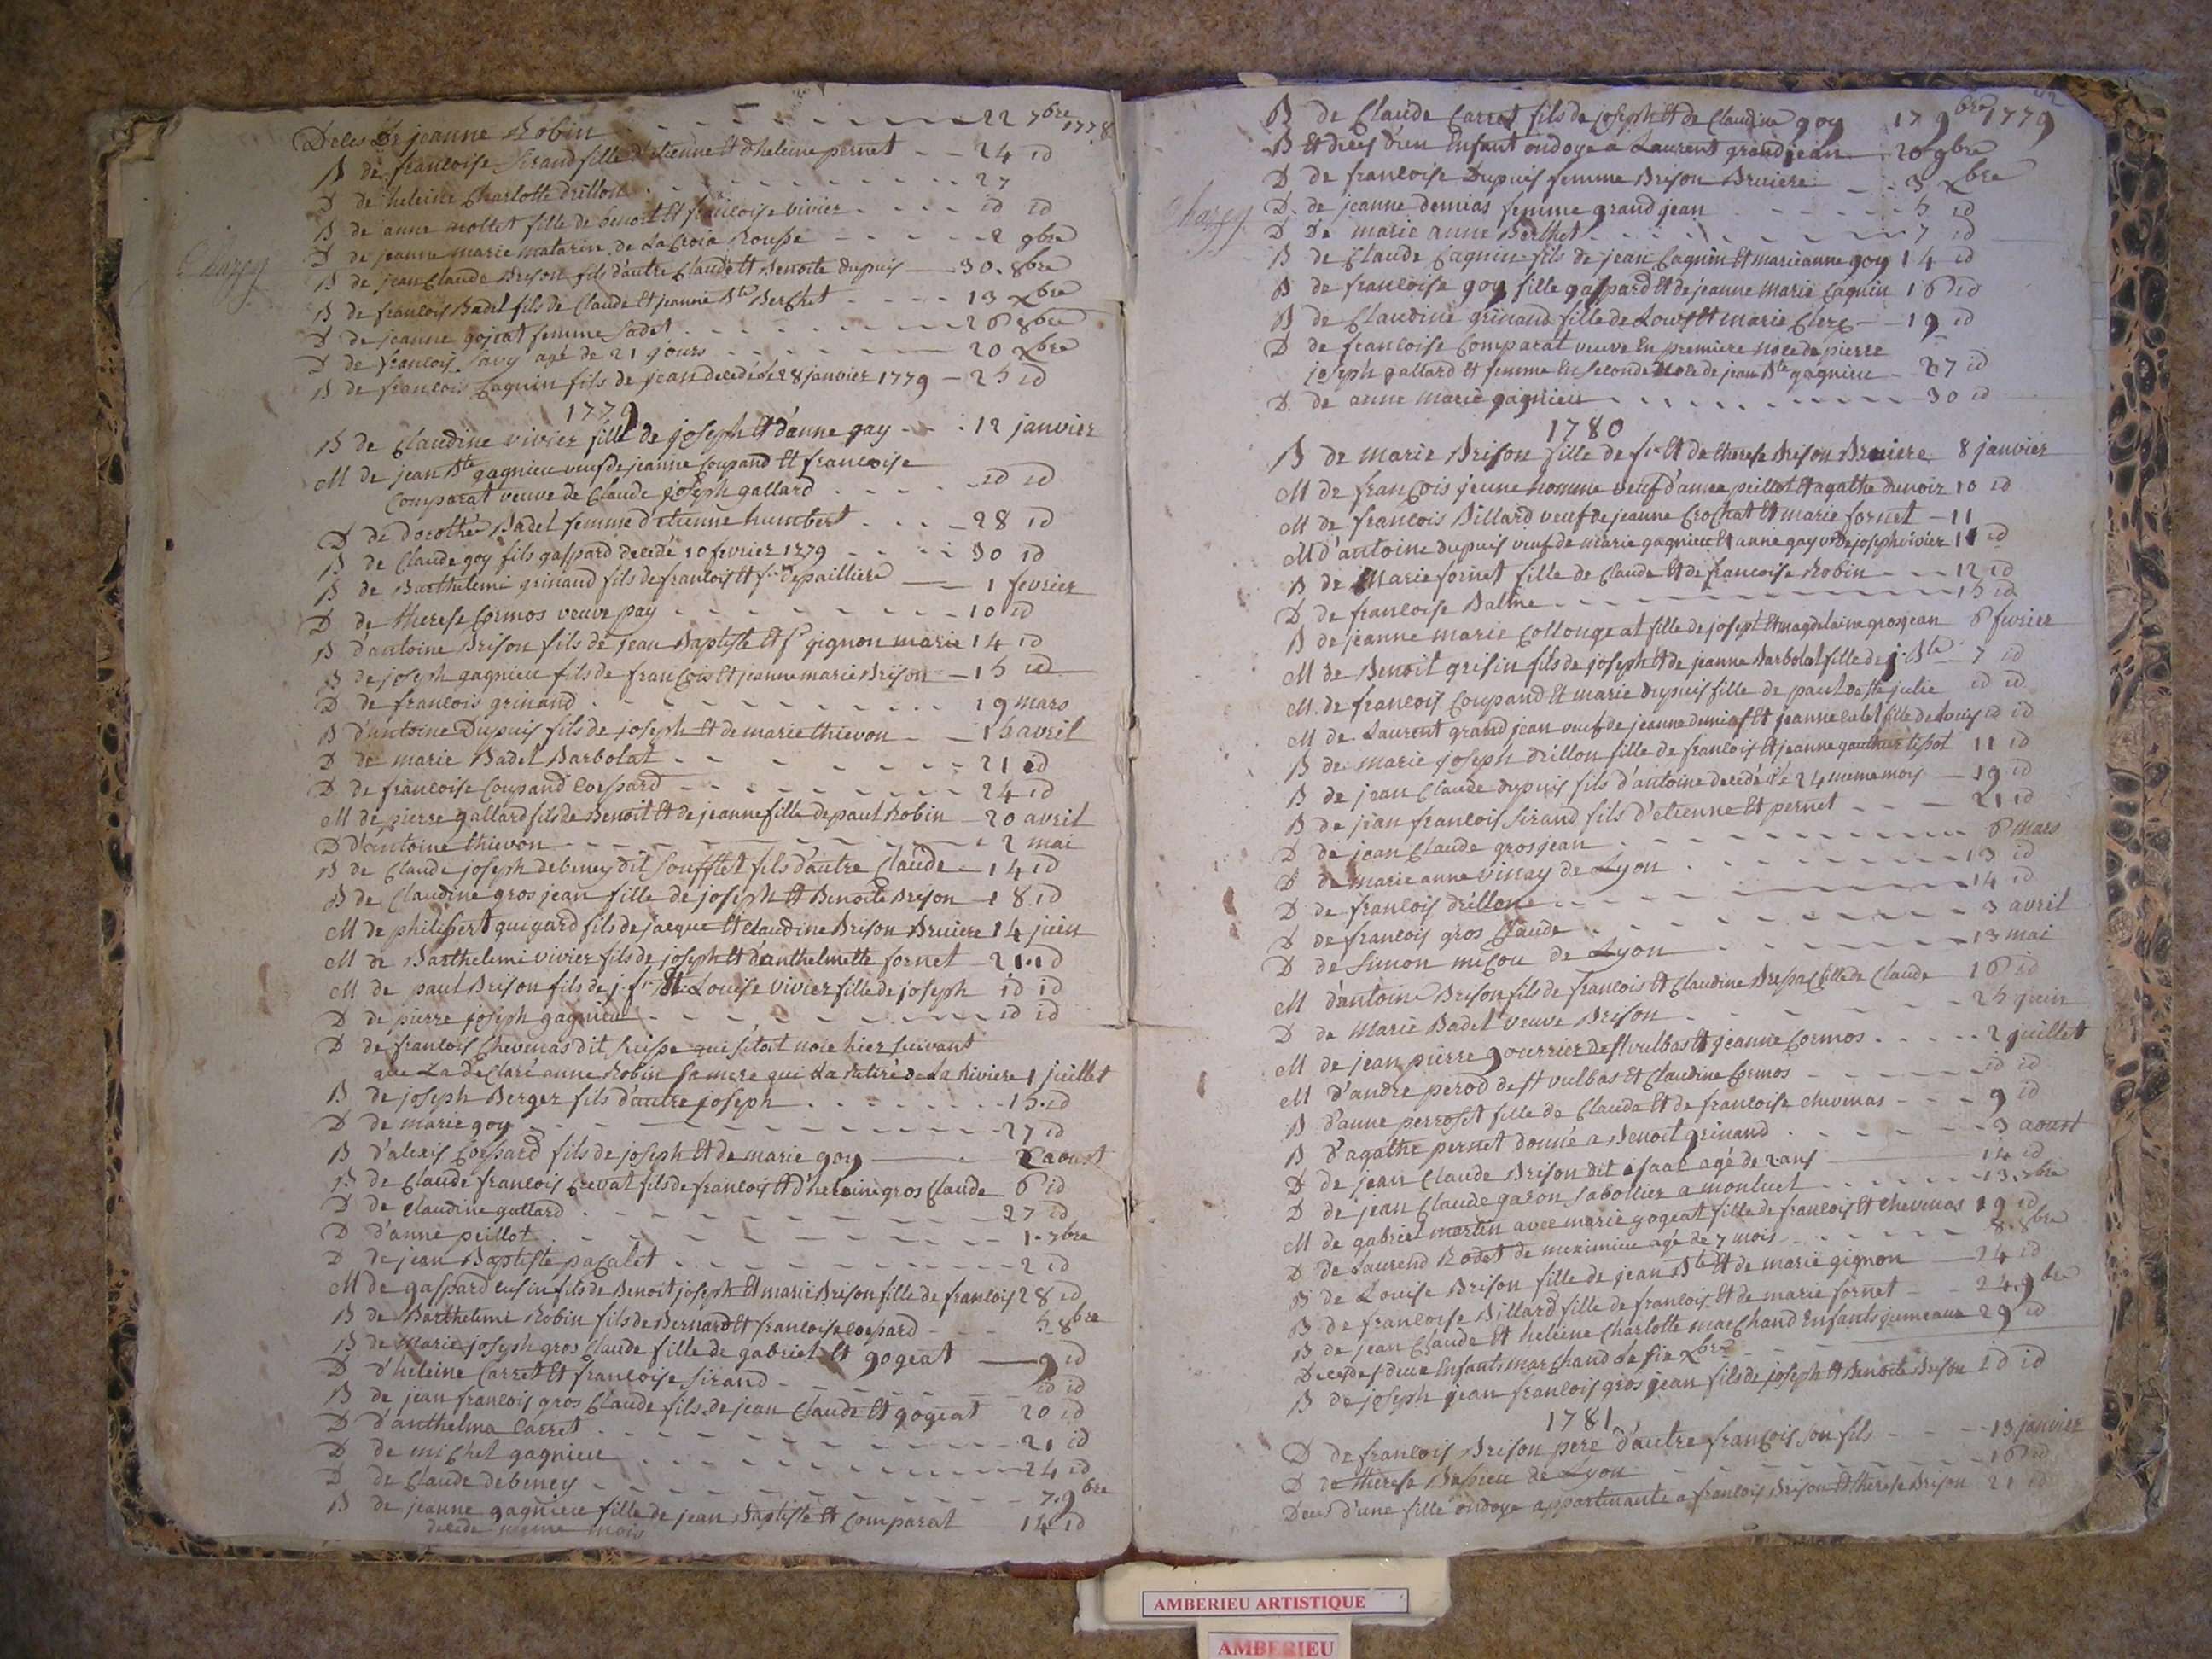 Deces De jeanne Robin - - - - - - 22 7bre 1778
B de francoise Sirand fille d'etienne Et d'heleine pernet - - 24 id
D de heleine Charlotte Drillon - - - - - - 27
B de anne mollet fille de benoit Et francoise vivier - - - - id id
D de jeanne marie matarin de La Croix Rousse - - - - 2 9bre
Charey
B de jean Claude Brison fils d'autre Claude Et Benoite dupuis - 30. 8bre
B de francois Badel fils de Claude Et jeanne Bte Berchet - - - - 13 xbre
D de jeanne gojeat femme Sadet - - - - - - 26 8bre
D de francois Savy agé de 21 jours - - - - - 20 xbre
B de francois Cagnin fils de jean decedé le 28 janvier 1779 - 25 id
1779
B de Claudine vivier fille de joseph Et d'anne gay - - - 12 janvier
M de jean Bte gagnieu veuf de jeanne Coupand Et francoise
Comparat veuve de Claude joseph gallard - - - - id id
D de dorothée Badel femme d'etienne humbert - - - - 28 id
B de Claude goy fils gaspard decedé 10 fevrier 1779 - - - 30 id
B de Barthelemi grinand fils de francois Et fse depailliere - 1 fevrier
D de therese Cormos veuve pay - - - - - - 10 id
B d'antoine Brison fils de jean Baptiste Et f gignon marie 14 id
B de joseph gagnieu fils de francois Et jeanne marie Brison - 15 id
D de francois grinand - - - - - - 19 mars
B d'antoine Dupuis fils de joseph Et de marie thievon - - 15 avril
D de marie Badel Barbolat - - - - - - 21 id
D de francoise Coupand Cossard - - - - - 24 id
M de pierre gallard fils de Benoit Et de jeanne fille de paul Robin - 20 avril
D d'antoine thievon - - - - - - 2 mai
B de Claude joseph debeney dit Soufflet fils d'autre Claude - 14 id
B de Claudine gros jean fille de joseph Et Benoite Brison - 18 id
M de philibert guigard fils de jacque Et Claudine Brison Bruiere 14 juin
M de Barthelemi vivier fils de joseph Et d'anthelmette fornet - 21 id
M de paul Brison fils de j. fr Et Louise vivier fille de joseph id id
D de pierre joseph gagnieu - - - - - - id id
D de francois Chevenas dit Suisse qui s'etoit noié hier suivant
que La déClaré anne Robin sa mere qui La Retiré de La Riviere 1 juillet
B de joseph Berger fils d'autre joseph - - - - 15 id
D de marie goy - - - - - - 27 id
B d'alexis Cossard fils de joseph Et de marie goy - 2 aoust
B de Claude francois Crevat fils de francois Et d'heleine gros Claude 6 id
D de Claudine gallard - - - - - - 27 id
D d'anne peillot - - - - - - 1. 7bre
D de jean Baptiste paCalet - - - - - - 2 id
M de gaspard fils de Benoit joseph Et marie Brison fille de francois 28 id
B de Barthelemi Robin fils de Bernard Et francoise Cossard - 5 8bre
B de marie joseph gros Claude fille de gabriel Et gogeat - 9 id
D d'heleine Carret Et francoise Sirand - - - - id id
B de jean francois gros Claude fils de jean Claude Et gogeat 20 id
D d'anthelma Carret - - - - - - 21 id
D de miChel gagnieu - - - - - - 24 id
D de Claude debeney - - - - - - 7. 9bre
B de jeanne gagnieu fille de jean Baptiste Et Comparat 14 id
decede meme mois
B de Claude Carret fils de joseph Et de Claudine goy 17 9bre 1779
B Et deces d'un Enfant ondoyé a Laurent grand jean 20 9bre
D de francoise Dupuis femme Brison Bruiere - - 3 xbre
Charey
D. de jeanne demias femme grand jean - - - - 5 id
D De marie anne Berthet - - - - - - 7 id
B de Claude Cagnin fils de jean Cagnin Et marie anne goy 14 id
B de francoise goy fille gaspard Et de jeanne marie Cagnin 16 id
B de Claudine grinand fille de Louis Et marie Clerc - - 19 id
D de francoise Comparat veuve En premiere noce de pierre
joseph gallard Et femme En seconde Noce de jean Bte gagnieu - 27 id
D. de anne marie gagnieu - - - - - - 30 id
1780
B de marie Brison fille de fr Et de therese Brison Bruiere 8 janvier
M de franCois jeune homme veuf d'anne peillot Et agathe dunoir 10 id
M de francois Billard veuf de jeanne Crochat Et marie fornet - 11
M d'antoine dupuis veuf de marie gagnieu Et anne gay ve de joseph vivier 11 id
B de Marie fornet fille de Claude Et de francoise Robin - - 12 id
D de francoise Balme - - - - - - 15 id
B de jeanne marie Collongeat fille de joseph Et magdelaine grosjean 6 fevrier
M de Benoit grisin fils de joseph Et de jeanne Barbolat fille de j. Bte 7 id
M. de francois Coupand Et marie dupuis fille de paul de Ste julie id id
M de Laurent grand jean veuf de jeanne demias Et jeanne fille de Louis id id
B de marie joseph drillon fille de francois Et jeanne gauthier tissot 11 id
B de jean Claude dupuis fils d'antoine decedé le 24 meme mois - 19 id
B de jean francois Sirand fils d'etienne Et pernet - - - 21 id
D de jean Claude grosjean - - - - - - 6 mars
D de marie anne vinay de Lyon - - - - - 13 id
D de francois drillon - - - - - - 14 id
D de francois gros Claude - - - - - - 3 avril
D de Simon miCou de Lyon - - - - - - 13 mai
M d'antoine Brison fils de francois Et Claudine fille de Claude 16 id
D de Marie Badel veuve Brison - - - - - 25 juin
M de jean pierre gourrier de St vulbas Et jeanne Cormos - - - 2 juillet
M d'andre perod de St vulbas Et Claudine Cormos - - - id id
B d'anne perroset fille de Claude Et de francoise chevenas - - 9 id
B d'agathe pernet donnée a Benoit grinand - - - - 3 aoust
D de jean Claude Brison dit isaac agé de 2 ans - 14 id
D de jean Claude garon Sabottier a monluel - - - - 13. 7bre
M de gabriel martin avec marie gogeat fille de francois Et chevenas 19 id
D de Laurend Rodet de meximieu agé de 7 mois - - - 8. 8bre
B de Louise Brison fille de jean Bte Et de marie gignon - 24 id
B de francoise Billard fille de francois Et de marie fornet - - 24. 9bre
B de jean Claude Et heleine Charlotte marChand Enfants jumeaux 29 id
Deces des deux Enfants marChand Le xbre - - -
B de joseph jean francois gros jean fils de joseph Et Benoite Brison id id
1781
D de francois Brison pere d'autre franCois son fils - - - 13 janvier
D de therese de Lyon - - - - - 16 id
Deces d'une fille ondoyé appartenante a francois Brison Et therese Brison 21 id
AMBERIEU ARTISTIQUE
AMBERIEU